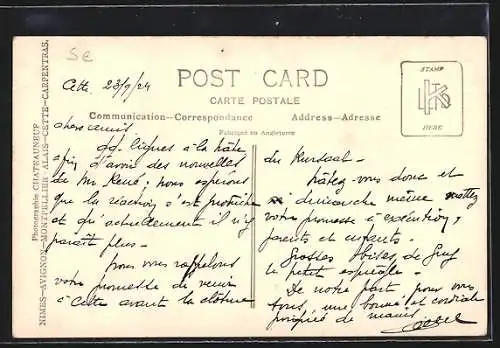 SE
Phonographie CHATEAUNEUF
NIMES—AVIGNON—MONTPELLIER—ALAIS—CETTE—CARPENTRAS.
POST CARD
CARTE POSTALE
Communication—Correspondance
Address—Adresse
Fabriqué en Angleterre
STAMP
HERE
Cette 23/9/24
chers amis
qq. lignes à la hâte
afin d'avoir des nouvelles
de Mr René; nous espérons
que la réaction s'est produite
et qu'actuellement il n'y
paraît plus—
nous vous rappelons
votre promesse de venir
à Cette avant la clôture
du Kursaal—
hâtez-vous donc et
dimanche même mettez
votre promesse à exécution,
parents et enfants.
Grosses bises de Guy
le petit espiègle—
De notre part pour vous
tous, une bonne et cordiale
poignée de mains